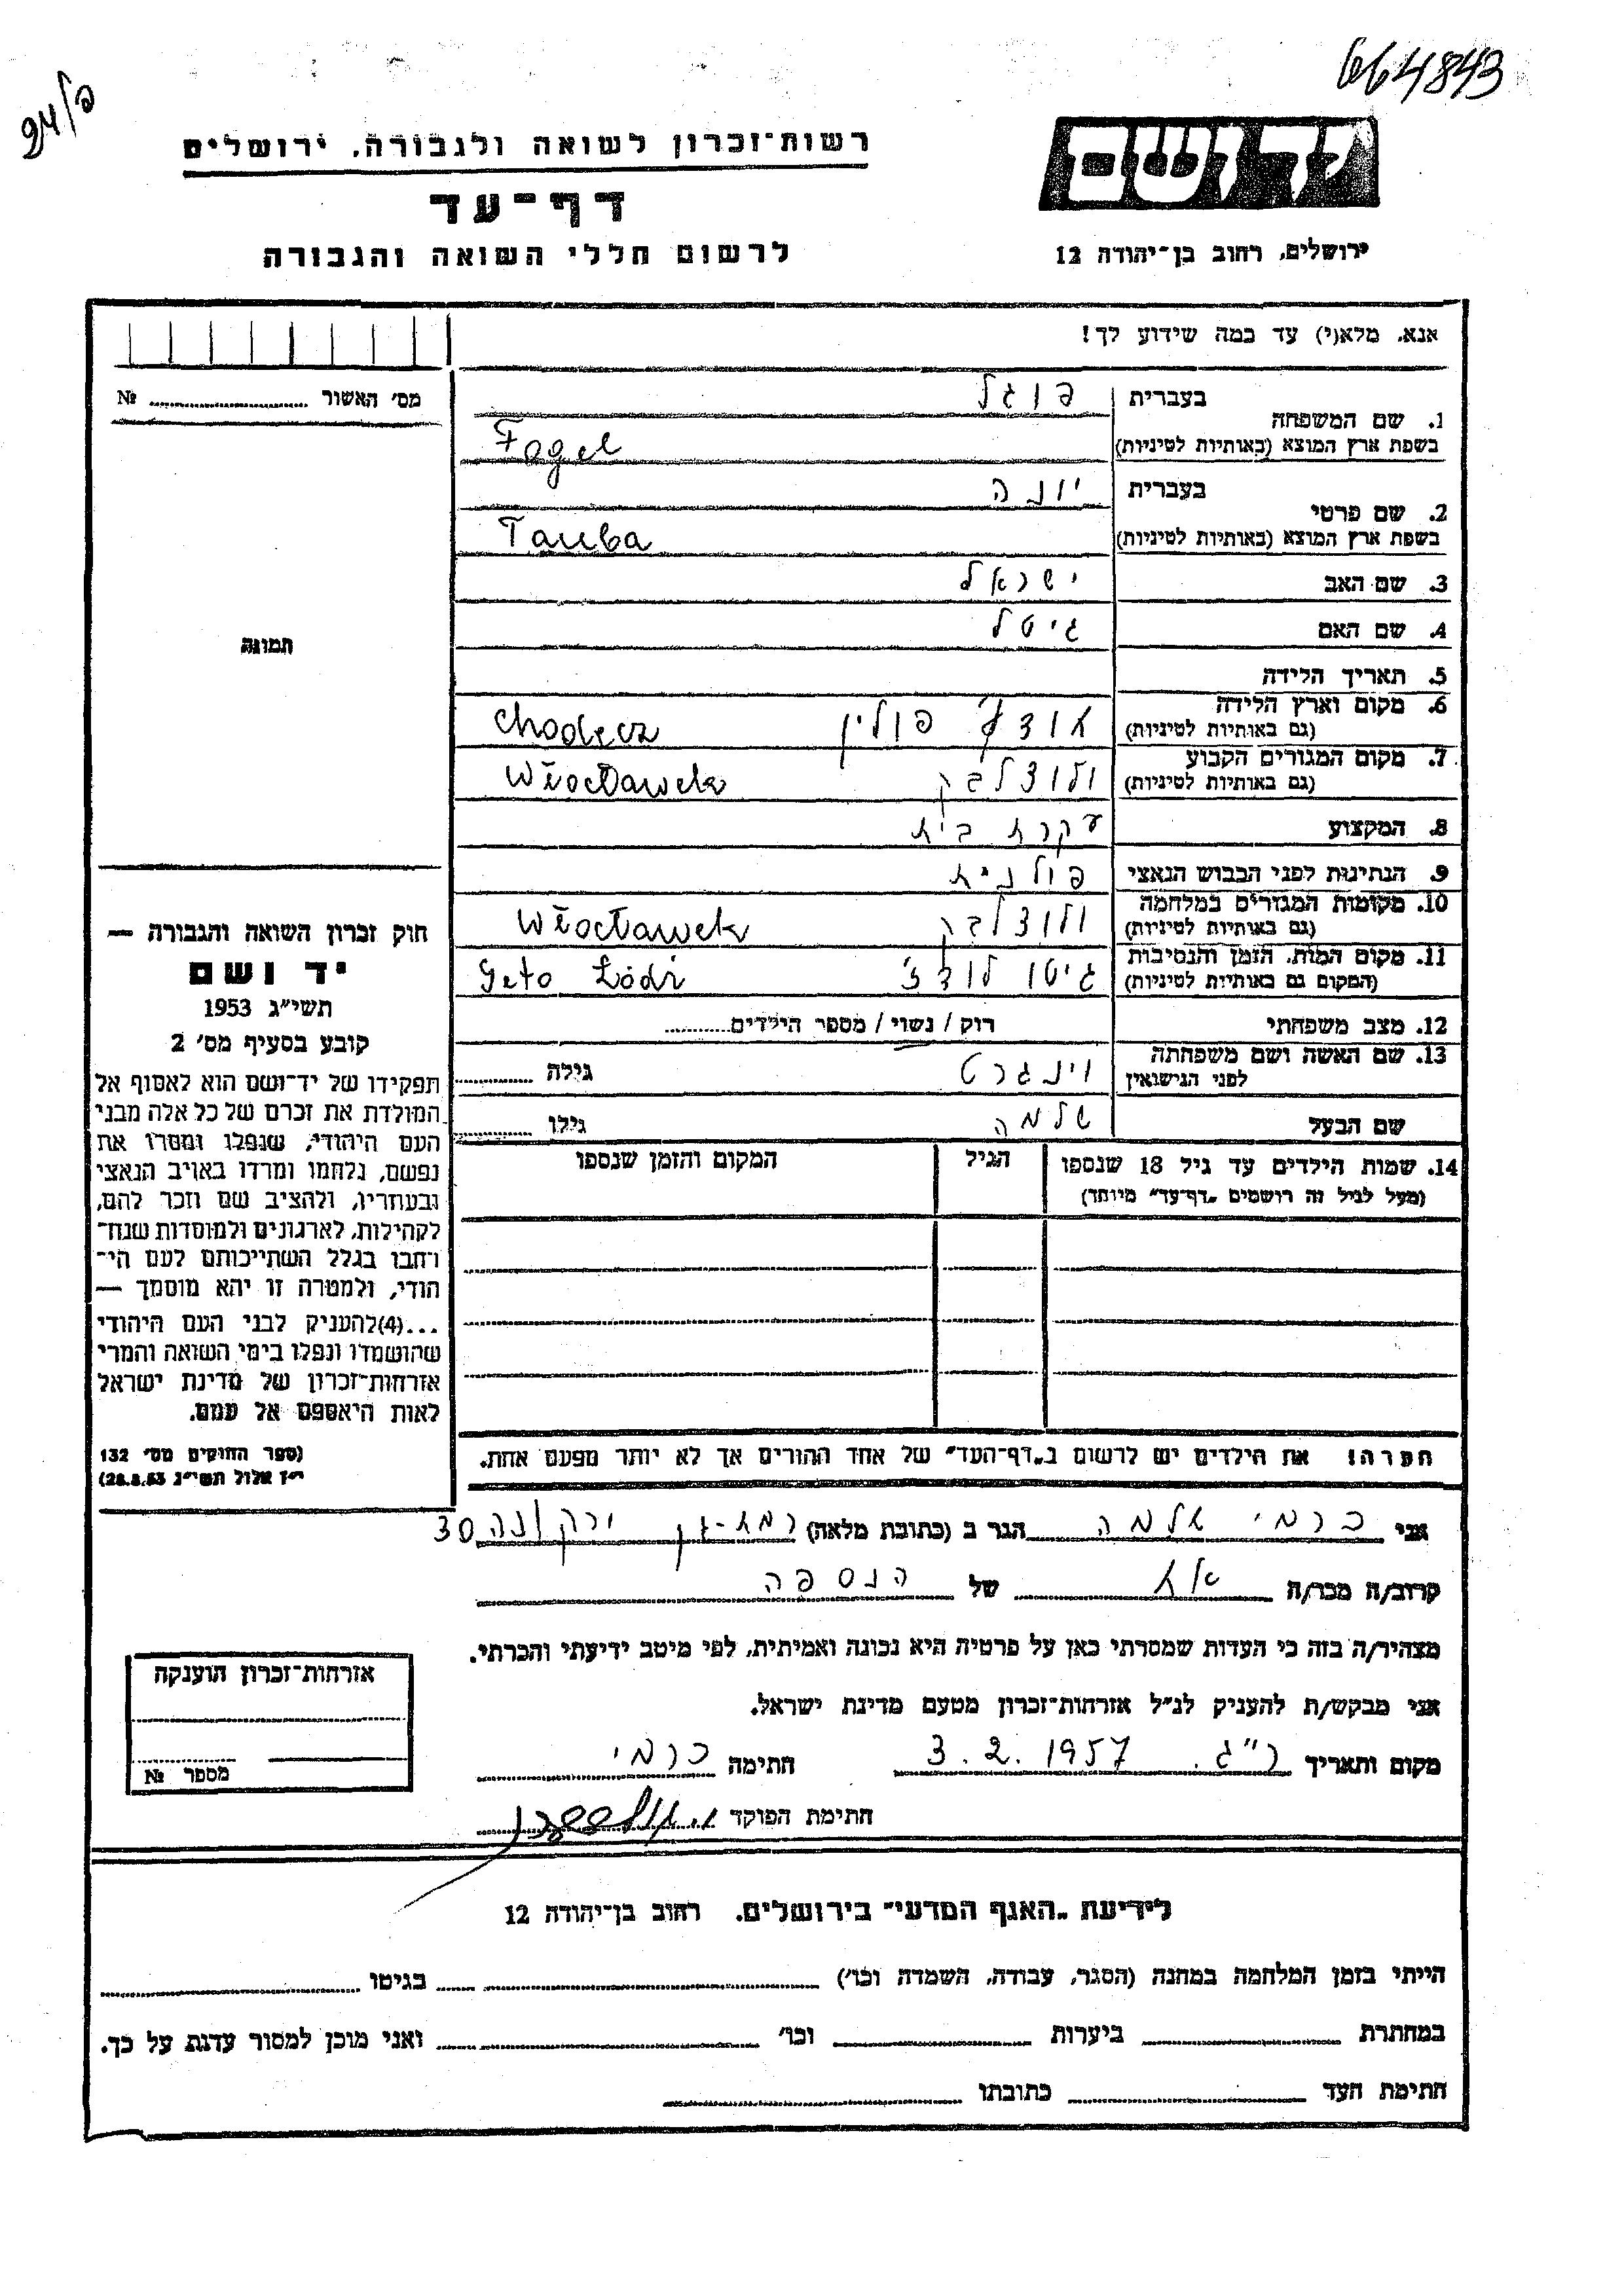 664843
פ/94
יד ושם
רשות-זכרון לשואה ולגבורה, ירושלים
דף-עד
ירושלים, רחוב בן-יהודה 12
לרשום חללי השואה והגבורה
אנא, מלא(י) עד כמה שידוע לך!
מס׳ האשור № 
1. שם המשפחה
בעברית פוגל
בשפת ארץ המוצא (באותיות לטיניות) Fogel
2. שם פרטי
בעברית יונה
בשפת ארץ המוצא (באותיות לטיניות) Tauba
3. שם האב ישראל
4. שם האם גיטל
תמונה
5. תאריך הלידה
6. מקום וארץ הלידה פולין Chodecz
(גם באותיות לטיניות)
7. מקום המגורים הקבוע ולוצלבק Włocławek
(גם באותיות לטיניות)
8. המקצוע עקרת בית
9. הנתינות לפני הכבוש הנאצי פולנית
10. מקומות המגורים במלחמה ולוצלבק Włocławek
(גם באותיות לטיניות)
11. מקום המות, הזמן והנסיבות גיטו לודז׳ Geto Łódź
(המקום גם באותיות לטיניות)
12. מצב משפחתי רוק / נשוי / מספר הילדים
13. שם האשה ושם משפחתה וינגרט גילה
לפני הנישואין
שם הבעל שלמה גילו
14. שמות הילדים עד גיל 18 שנספו הגיל המקום והזמן שנספו
(מעל לגיל זה רושמים „דף-עד" מיוחד)
חוק זכרון השואה והגבורה —
יד ושם
תשי״ג 1953
קובע בסעיף מס׳ 2
תפקידו של יד-ושם הוא לאסוף אל
המולדת את זכרם של כל אלה מבני
העם היהודי, שנפלו ומסרו את
נפשם, נלחמו ומרדו באויב הנאצי
ובעוזריו, ולהציב שם וזכר להם,
לקהילות, לארגונים ולמוסדות שנח-
רבו בגלל השתייכותם לעם הי-
הודי, ולמטרה זו יהא מוסמך —
...(4)להעניק לבני העם היהודי
שהושמדו ונפלו בימי השואה והמרי
אזרחות-זכרון של מדינת ישראל
לאות היאספם אל עמם.
(ספר החוקים מס׳ 132
י״ז אלול תשי״ג 28.8.53)
הערה! את הילדים יש לרשום ב„דף-העד" של אחד ההורים אך לא יותר מפעם אחת.
אני כרמי שלמה הגר ב (כתובת מלאה) רמת-גן ירקונה 30
קרוב/ה מכר/ה אח של הנספה
מצהיר/ה בזה כי העדות שמסרתי כאן על פרטיה היא נכונה ואמיתית, לפי מיטב ידיעתי והכרתי.
אני מבקש/ת להעניק לנ״ל אזרחות-זכרון מטעם מדינת ישראל.
מקום ותאריך ר״ג. 3.2.1957 חתימה כרמי
חתימת הפוקד
אזרחות-זכרון הוענקה
מספר №
לידיעת „האגף המדעי" בירושלים, רחוב בן-יהודה 12
הייתי בזמן המלחמה במחנה (הסגר, עבודה, השמדה וכו׳) בגיטו
במחתרת ביערות וכו׳ ואני מוכן למסור עדות על כך.
חתימת העד כתובתו